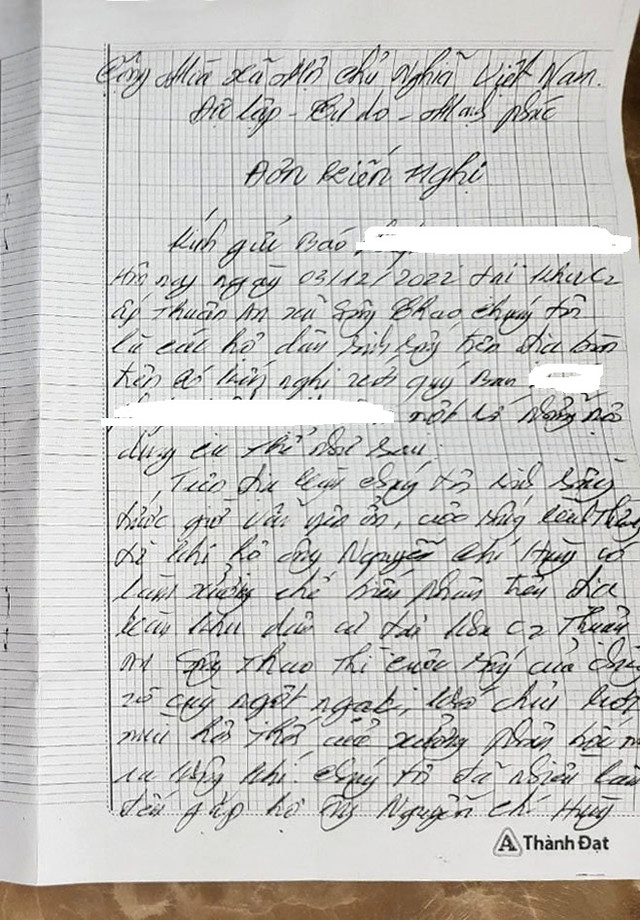 Cộng Hòa Xã Hội Chủ Nghĩa Việt Nam.
Độc lập - Tự do - Hạnh phúc
Đơn Kiến Nghị
Kính gửi Báo
Hôm nay ngày 03/12/2022 tại khu C2
ấp Thuận An xã Sông Thao chúng tôi
là các hộ dân sinh sống trên địa bàn
trên có kiến nghị với quý Ban
một số nội
dung cụ thể như sau:
Trên địa bàn chúng tôi sinh sống
trước giờ vẫn yên ổn, cuộc sống
từ khi hộ ông Nguyễn Chí Hùng có
làm xưởng chế biến phân trên địa
bàn khu dân cư tại khu C2 Thuận
An Sông Thao thì cuộc sống của
vô cùng ngột ngạt, chịu
mùi hôi thối của xưởng phân bốc
ra không khí. Chúng tôi đã nhiều lần
đến gặp hộ ông Nguyễn Chí Hùng
Thành Đạt